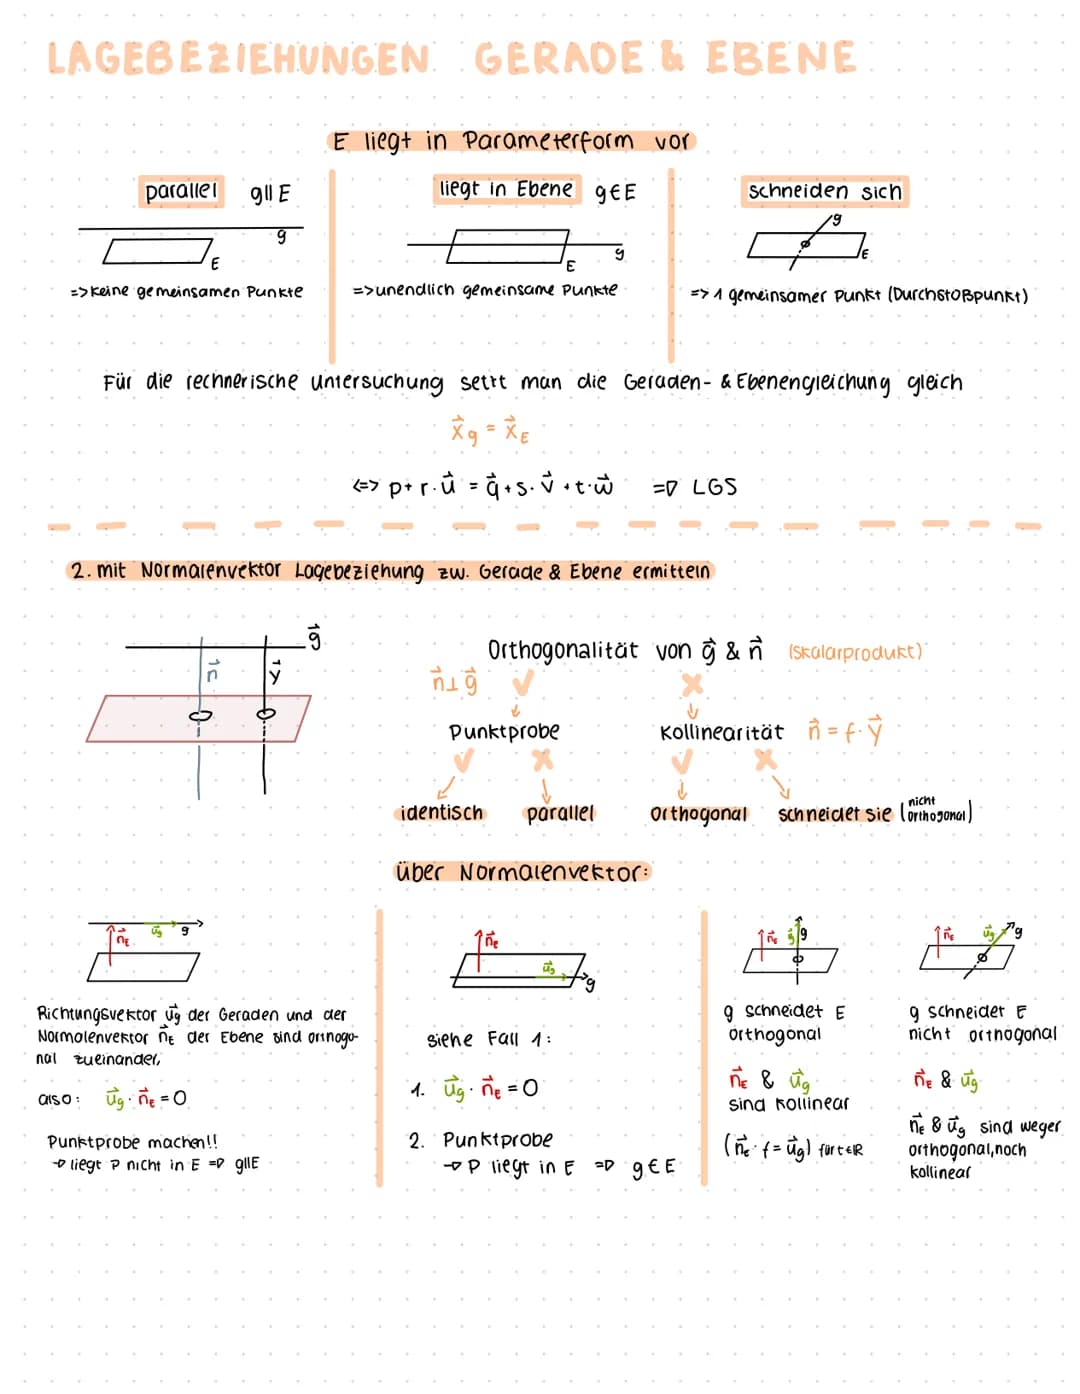 LAGEBEZIEHUNGEN GERADE & EBENE
E liegt in Parameterform vor
parallel g∥E
g
E
=> keine gemeinsamen Punkte
liegt in Ebene g∈E
g
E
=> unendlich gemeinsame Punkte
schneiden sich
g
E
=> 1 gemeinsamer Punkt (Durchstoßpunkt)
Für die rechnerische untersuchung setzt man die Geraden- & Ebenengleichung gleich
x⃗g = x⃗E
<=> p + r·u⃗ = q⃗ + s·v⃗ + t·w⃗ => LGS
2. mit Normalenvektor Lagebeziehung zw. Gerade & Ebene ermitteln
g⃗
n⃗ y⃗
Orthogonalität von g⃗ & n⃗ (Skalarprodukt)
n⃗⊥g⃗ ✓ ×
↓ ↓
Punktprobe Kollinearität n⃗ = f·y⃗
✓ × ✓ ×
↙ ↓ ↓ ↘
identisch parallel orthogonal schneidet sie (nicht orthogonal)
über Normalenvektor:
n⃗E u⃗g g
Richtungsvektor u⃗g der Geraden und der
Normalenvektor n⃗E der Ebene sind orthogo-
nal zueinander,
also: u⃗g · n⃗E = 0
Punktprobe machen!!
→ liegt P nicht in E => g∥E
n⃗E
u⃗g
g
siehe Fall 1:
1. u⃗g · n⃗E = 0
2. Punktprobe
→ P liegt in E => g∈E
n⃗E g
g schneidet E
orthogonal
n⃗E & u⃗g
sind kollinear
(n⃗E · f = u⃗g) für t∈ℝ
n⃗E u⃗g g
g schneidet E
nicht orthogonal
n⃗E & u⃗g
n⃗E & u⃗g sind weger
orthogonal, noch
kollinear